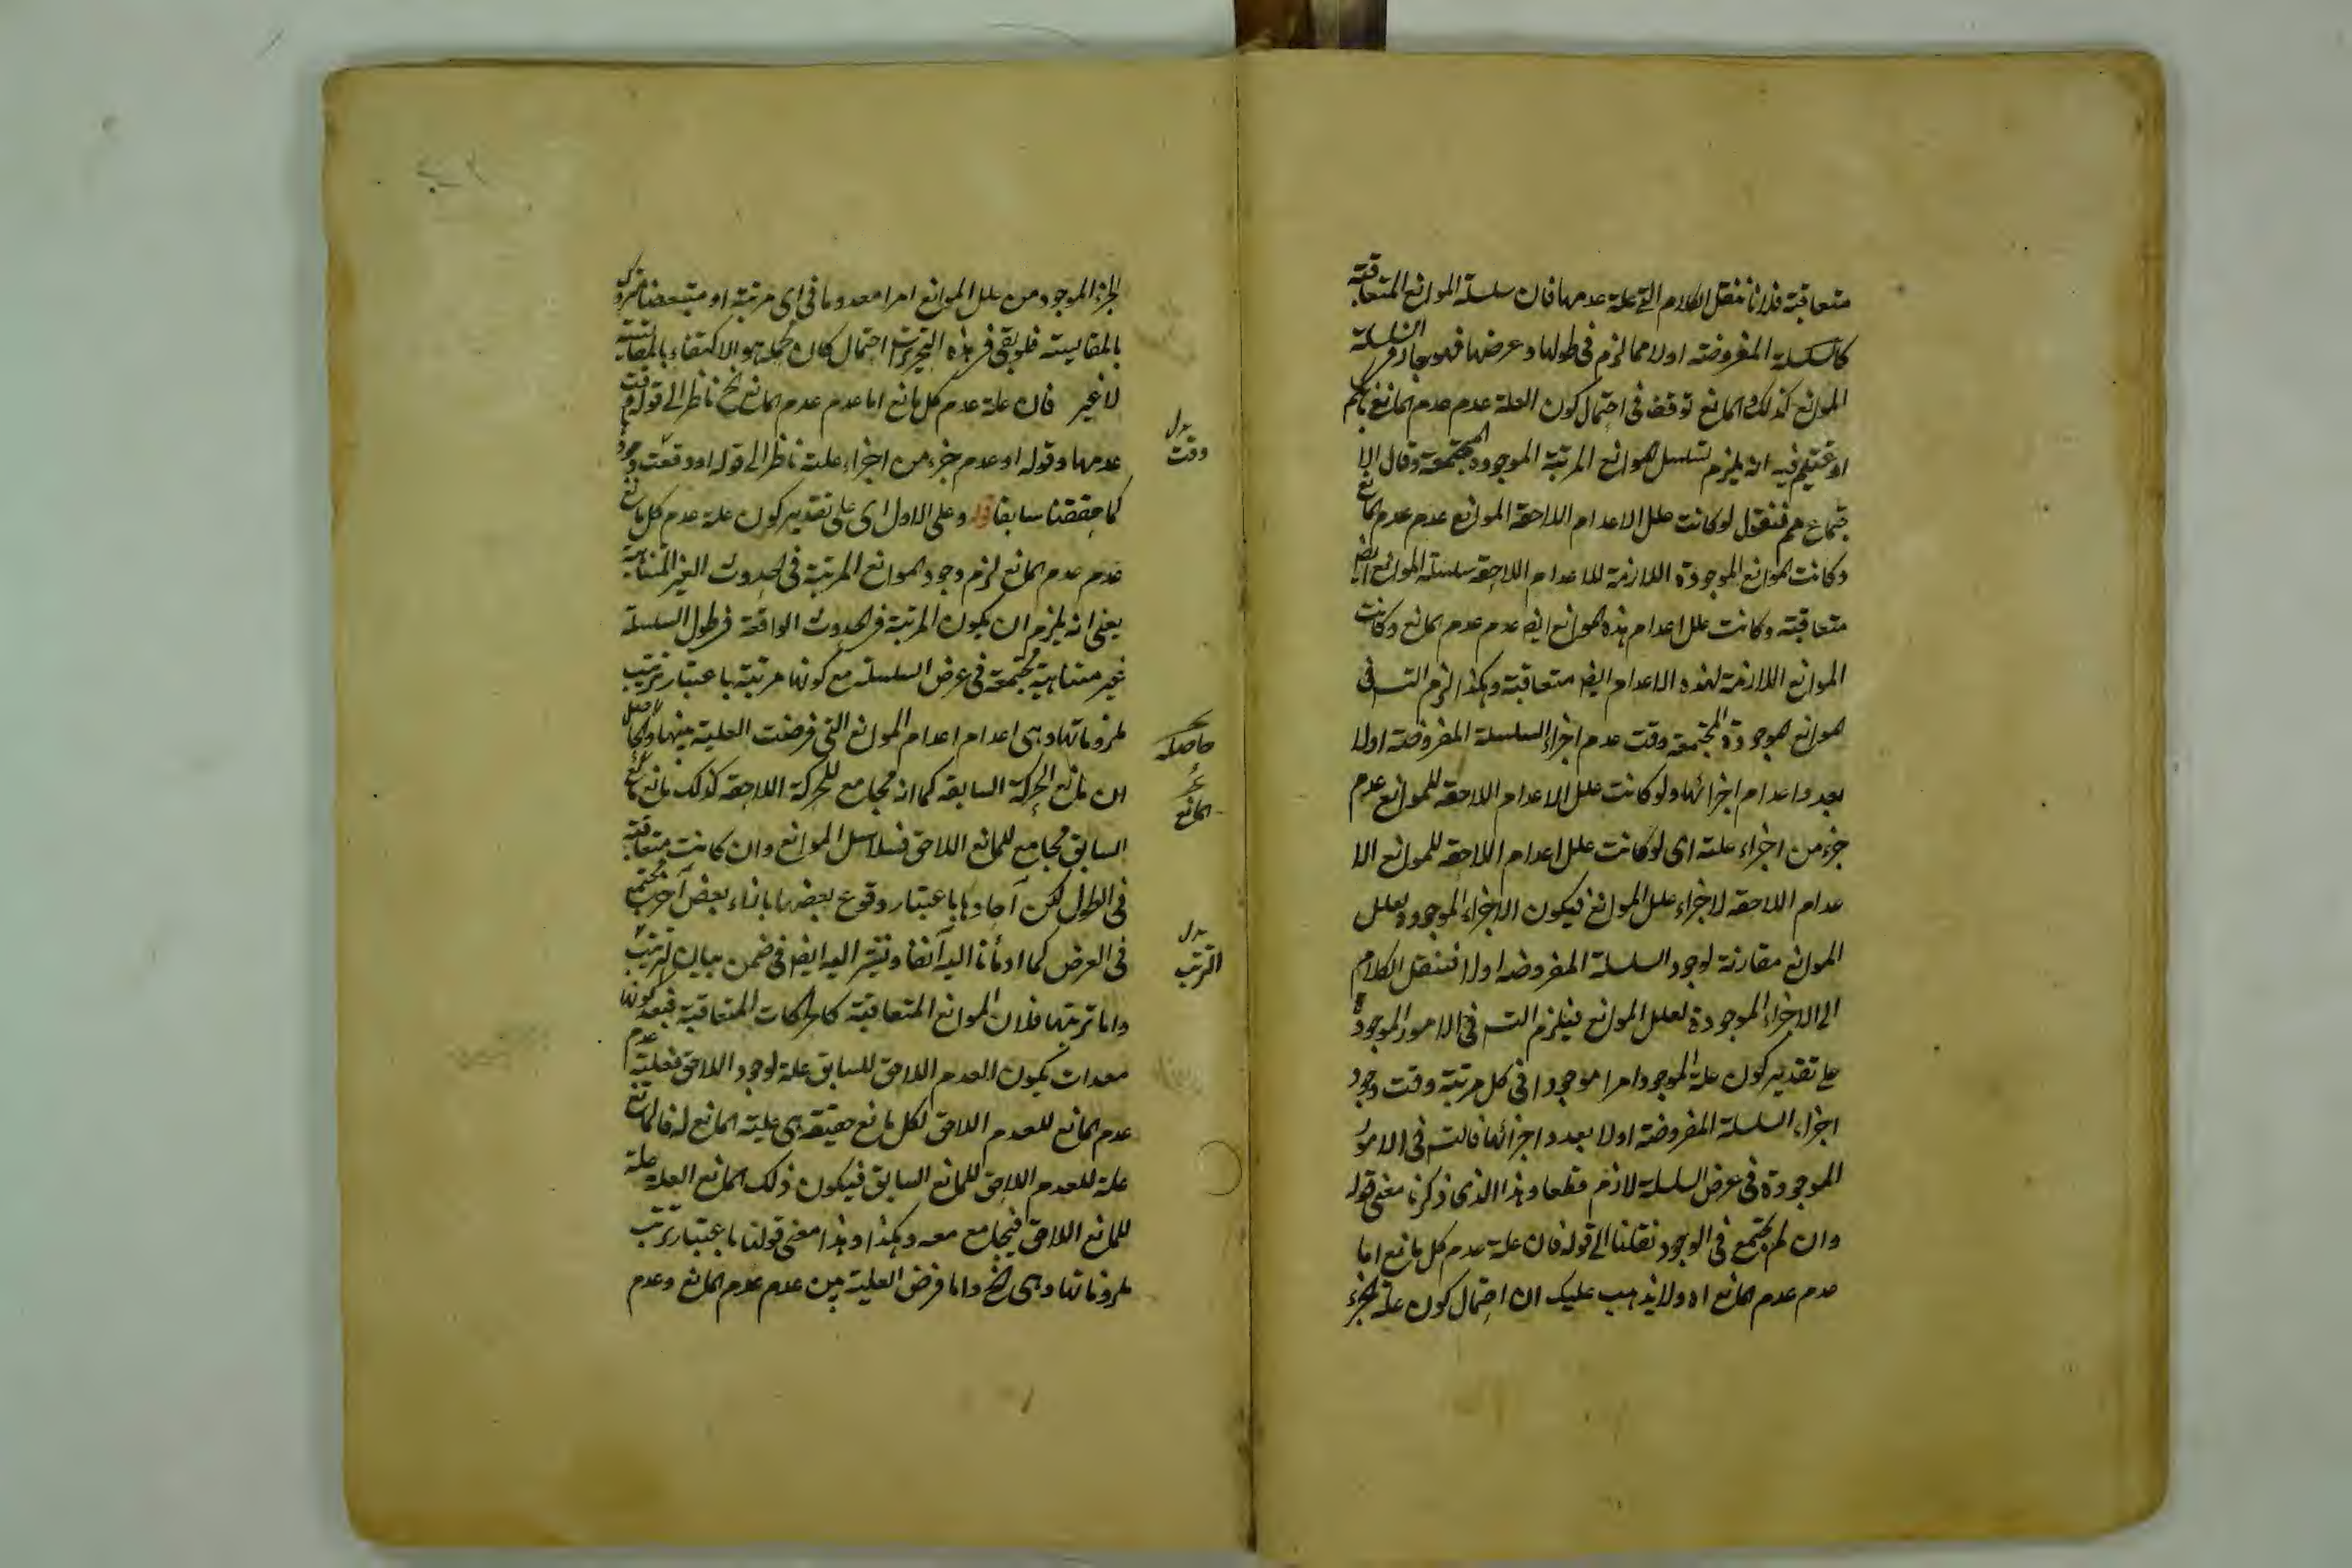 متعاقبة فلانا ننقل الكلام الى علة عدمها فان سلسلة الموانع المتعاقبة
كالسلسلة المفروضة اولا مما لزم فى طولها وعرضها فهو جار فى السلسلة
الموانع كذلك والمانع توقف فى احتمال كون العلة عدم عدم المانع
فيه انه يلزم تسلسل الموانع المرتبة الموجودة المجتمعة وقال الا
جتماع هم فنقول لو كانت علل الاعدام اللاحقة الموانع عدم عدم المانع
وكانت الموانع الموجودة اللازمة للاعدام اللاحقة سلسلة الموانع ايض
متعاقبة وكانت علل اعدام هذه الموانع ايض عدم عدم المانع وكانت
الموانع اللازمة لهذه الاعدام ايض متعاقبة وهكذا لزم التسـ فى
الموانع الموجودة المجتمعة وقت عدم اجزاء السلسلة المفروضة اولا
بعدد اعدام اجزائها ولو كانت علل الاعدام اللاحقة للموانع عدم
جزء من اجزاء علته اى لو كانت علل اعدام اللاحقة للموانع الا
عدام اللاحقة لاجزاء علل الموانع فيكون الاجزاء الموجودة لعلل
الموانع مقارنة لوجود السلسلة المفروضة اولا فننقل الكلام
الى الاجزاء الموجودة لعلل الموانع فيلزم التسـ فى الامور الموجودة
على تقدير كون علة الموجود امرا موجودا فى كل مرتبة وقت وجود
اجزاء السلسلة المفروضة اولا بعدد اجزائها فالتسـ فى الامور
الموجودة فى عرض السلسلة لازم قطعا وهذا الذى ذكرنا معنى قوله
وان لم يجتمع فى الوجود نقلنا الى قوله فان علة عدم كل مانع اما
عدم عدم المانع اه ولا يذهب عليك ان احتمال كون علة الجزء
الجزء الموجود من علل الموانع امرا معدوما فى اى مرتبة او متبعضا متروك
بالمقايسة فلو بقى فى هذه التحريرات احتمال كان محمله هو الاكتفاء بالمقايسة
لا غير فان علة عدم كل مانع اما عدم عدم المانع الخ ناظر الى قوله وقت
عدمها وقوله او عدم جزء من اجزاء علته ناظر الى قوله او وقعت وجود
كما حققنا سابقا قوله وعلى الاول اى على تقدير كون علة عدم كل مانع
عدم عدم المانع لزم وجود الموانع المرتبة فى الحدوث الغير المتناهية
يعنى انه يلزم ان يكون المرتبة فى الحدوث الواقعة فى طول السلسلة
غير متناهية مجتمعة فى عرض السلسلة مع كونها مرتبة باعتبار ترتب
ملزوماتها وهى اعدام اعدام الموانع التى فرضت العلية بينها والحاصل
ان مانع الحركة السابقة كما انه مجامع للحركة اللاحقة كذلك مانع مانع
السابق مجامع للمانع اللاحق فسلاسل الموانع وان كانت متعاقبة
فى الطول لكن آحادها باعتبار وقوع بعضها بازاء بعض آخر يجتمع
فى العرض كما اومأنا اليه آنفا ونشير اليه ايض فى ضمن بيان الترتب
واما ترتبها فلان الموانع المتعاقبة كالحركات المتعاقبة فبعد كونها
معدات يكون العدم اللاحق للسابق علة لوجود اللاحق فعلية عدم
عدم المانع للعدم اللاحق لكل مانع حقيقة هى علية المانع له فالمانع
علة للعدم اللاحق للمانع السابق فيكون ذلك المانع العلة علة
للمانع اللاحق فيجامع معه وهكذا وهذا معنى قولنا باعتبار ترتب
ملزوماتها وهى الخ واما فرض العلية بين عدم عدم المانع وعدم
بدل
وقت
حاصله
المانع
بدل
الترتب